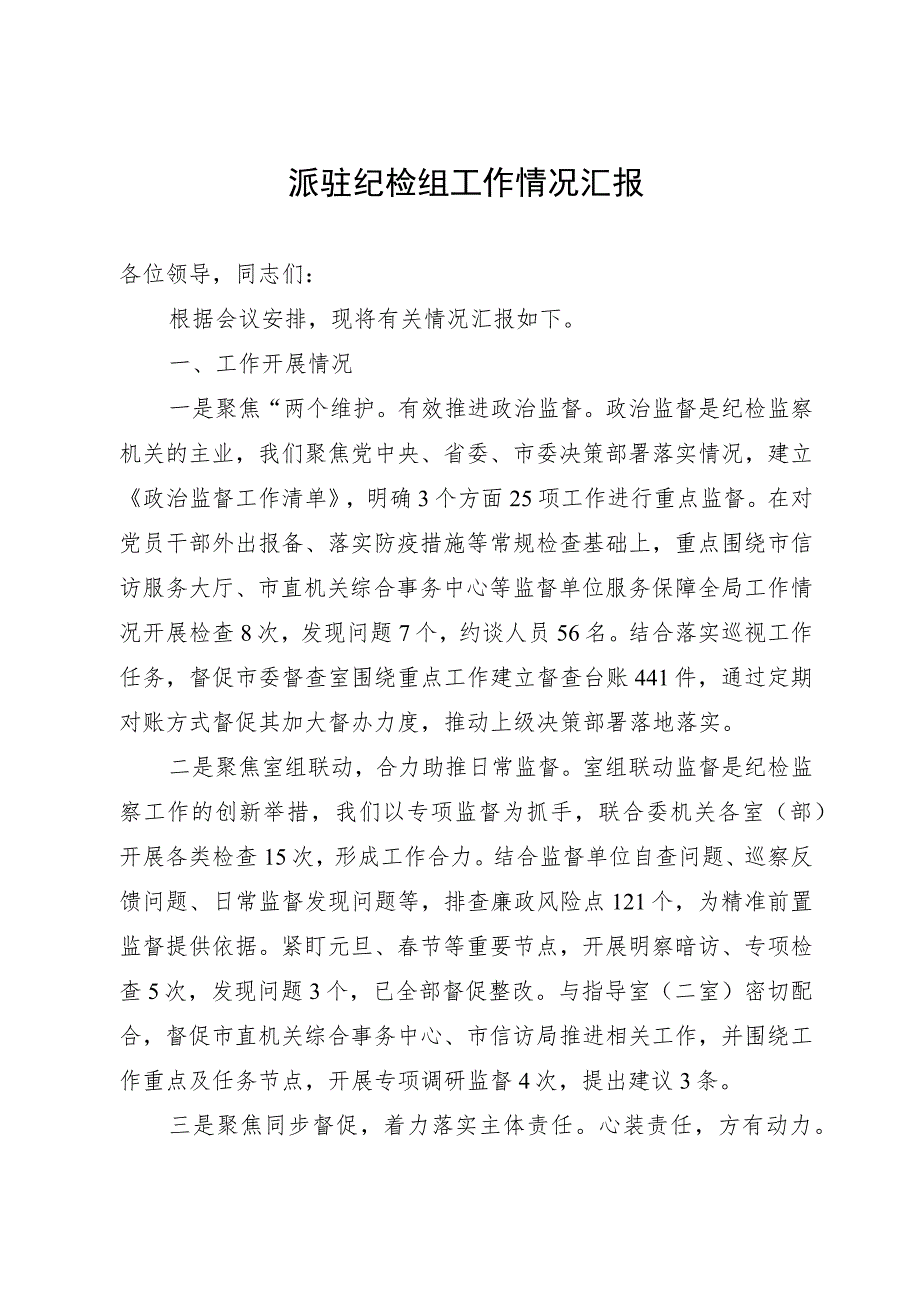 派驻纪检组工作情况汇报
各位领导，同志们：
根据会议安排，现将有关情况汇报如下。
一、工作开展情况
一是聚焦“两个维护。有效推进政治监督。政治监督是纪检监察
机关的主业，我们聚焦党中央、省委、市委决策部署落实情况，建立
《政治监督工作清单》，明确 3 个方面 25 项工作进行重点监督。在对
党员干部外出报备、落实防疫措施等常规检查基础上，重点围绕市信
访服务大厅、市直机关综合事务中心等监督单位服务保障全局工作情
况开展检查 8 次，发现问题 7 个，约谈人员 56 名。结合落实巡视工作
任务，督促市委督查室围绕重点工作建立督查台账 441 件，通过定期
对账方式督促其加大督办力度，推动上级决策部署落地落实。
二是聚焦室组联动，合力助推日常监督。室组联动监督是纪检监
察工作的创新举措，我们以专项监督为抓手，联合委机关各室（部）
开展各类检查 15 次，形成工作合力。结合监督单位自查问题、巡察反
馈问题、日常监督发现问题等，排查廉政风险点 121 个，为精准前置
监督提供依据。紧盯元旦、春节等重要节点，开展明察暗访、专项检
查 5 次，发现问题 3 个，已全部督促整改。与指导室（二室）密切配
合，督促市直机关综合事务中心、市信访局推进相关工作，并围绕工
作重点及任务节点，开展专项调研监督 4 次，提出建议 3 条。
三是聚焦同步督促，着力落实主体责任。心装责任，方有动力。